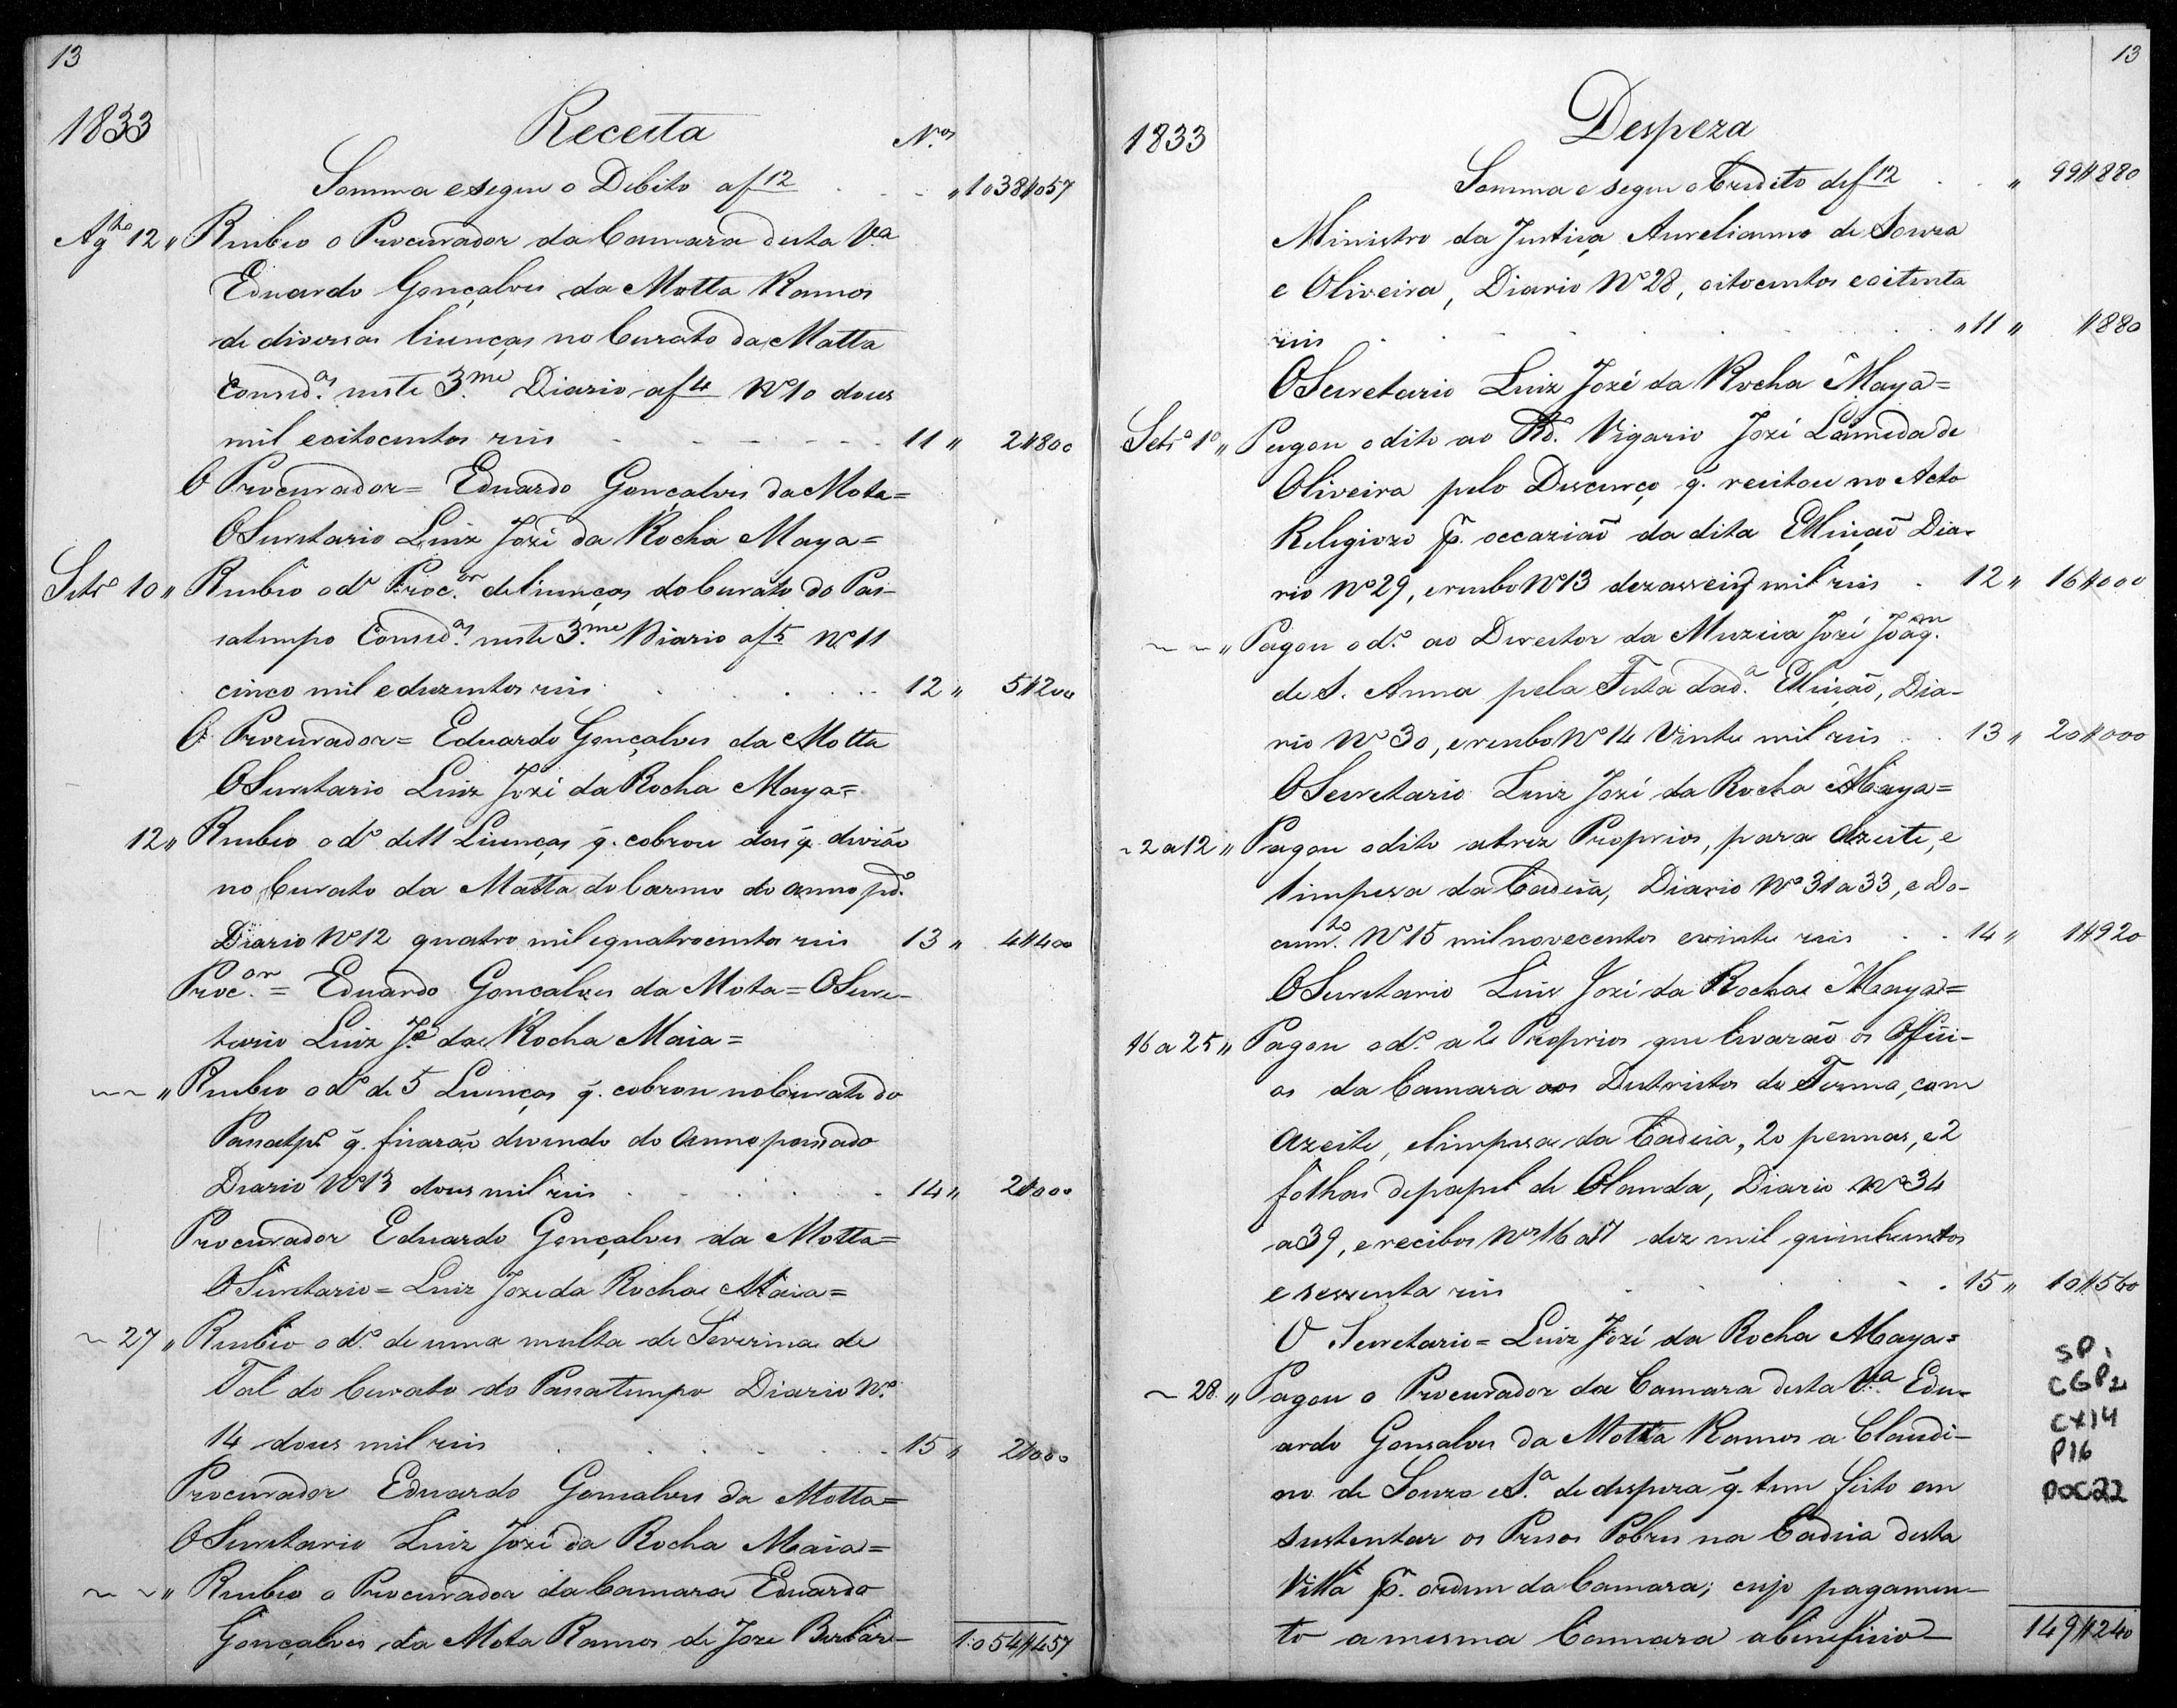 13
1833 Receita N.os
Somma e segue o Debito a f 12 " 1038#057
Ag.to 12 " Recebeo o Procurador da Camara desta V.a
Eduardo Gonçalves da Motta Ramos
de diversas licenças no Curato da Matta
Consed.as neste 3.me Diario a f 4 Nº 10 dous
mil e oitocentos reis 11 " 2#800
O Procurador = Eduardo Gonçalves da Mota =
O Secretario Luiz Jozé da Rocha Maya =
Setr.o 10 " Recebeo o d.o Proc.or de licenças do Curato do Pas-
satempo Consed.as neste 3.me Diario a f 5 Nº 11
cinco mil e duzentos reis 12 " 5#200
O Procurador = Eduardo Gonçalves da Motta
O Secretario Luiz Jozé da Rocha Maya =
12 " Recebeo o d.o de 11 Licenças q. cobrou das q. devião
no Curato da Matta do Carmo do anno p.do
Diario Nº 12 quatro mil e quatrocentos reis 13 " 4#400
Proc.or = Eduardo Goncalves da Mota = O Secre-
tario Luiz J.e da Rocha Maia =
~ ~ " Recebeo o d.o de 5 Licenças q. cobrou no Curato do
Passatp.o q. ficarão devendo do anno passado
Diario Nº 13 dous mil reis 14 " 2#000
Procurador Eduardo Gonçalves da Motta =
O Secretario = Luiz Joze da Rocha Maia =
~ 27 " Recebeo o d.o de uma multa de Severina de
Tal do Curato do Passatempo Diario N.o
14 dous mil reis 15 " 2#000
Procurador Eduardo Gonsalves da Motta =
O Secretario Luiz Jozé da Rocha Maia =
~ ~ " Recebeo o Procurador da Camara Eduardo
Gonçalves da Mota Ramos de Joze Barbare- 1:054#457
13
1833 Despeza
Somma e segue o Credito de f 12 " 99#880
Ministro da Justiça Aurelianno de Souza
e Oliveira, Diario Nº 28, oitocentos e oitenta
reis " 11 " #880
O Secretario Luiz Jozé da Rocha Maya =
Setr.o 1º " Pagou o dito ao Rd.o Vigario Jozé Lameda de
Oliveira pelo Discurço q. recitou no Acto
Religiozo p. occazião da dita Elleição Dia-
rio Nº 29, e recibo Nº 13 dezasseis mil reis 12 " 16#000
~ ~ " Pagou o d.o ao Director da Muzica Jozé Joaq.m
de S. Anna pela Festa da d.a Elleição, Dia-
rio Nº 30, e recibo Nº 14 Vinte mil reis 13 " 20#000
O Secretario Luiz Jozé da Rocha Maya =
~ 2 a 12 " Pagou o dito a trez Proprios, para Azeite, e
limpesa da Cadeia, Diario Nº 31 a 33, e Do-
cum.to Nº 15 mil novecentos e vinte reis 14 " 1#920
O Secretario Luiz Jozé da Rocha Maya =
16 a 25 " Pagou o d.o a 2 Proprios que levarão os Offici-
os da Camara aos Destrictos do Termo, com
Azeite, e limpesa da Cadeia, 20 pennas, e 2
folhas de papel de Olanda, Diario Nº 34
a 39, e recibos Nos 16 a 17 dez mil quinhentos
e sessenta reis 15 " 10#560
O Secretario = Luiz Jozé da Rocha Maya =
~ 28 " Pagou o Procurador da Camara desta V.a Edu-
ardo Gonsalves da Motta Ramos a Claudi-
no de Souza e S.a de despeza q. tem feito em
sustentar os Presos Pobres na Cadeia desta
Villa p. ordem da Camara; cujo pagamen-
to a mesma Camara a beneficio 149#240
SP1
CGP2
CX14
P16
DOC22